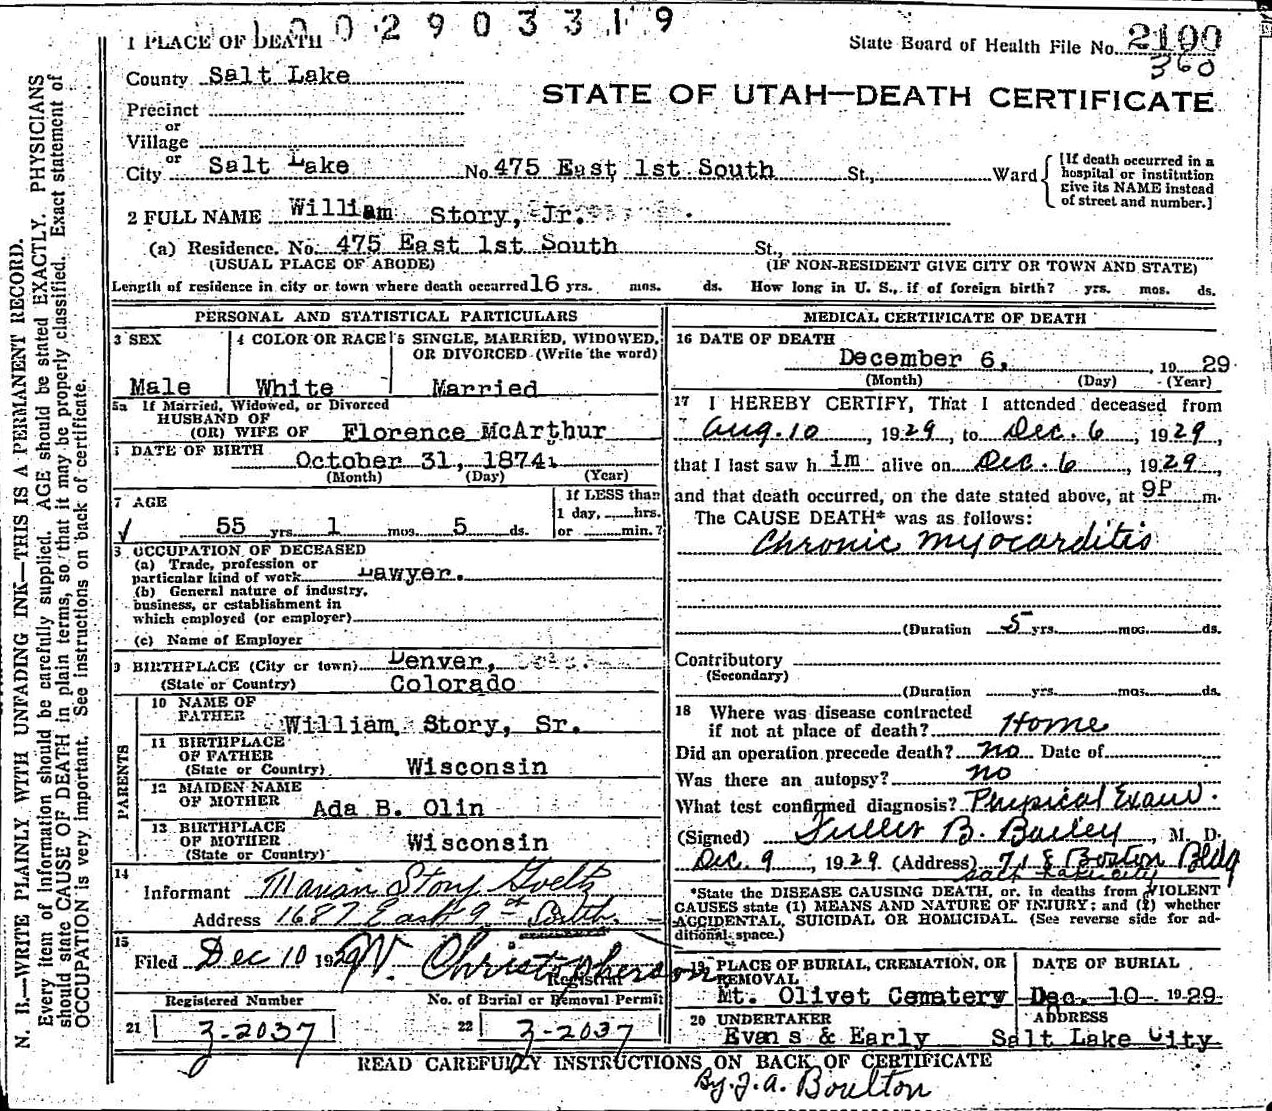 0 0 2 9 0 3 3 1 9
1 PLACE OF DEATH
State Board of Health File No. 2100
360
County Salt Lake
STATE OF UTAH—DEATH CERTIFICATE
Precinct
or
Village
or
City Salt Lake No. 475 East 1st South St., Ward
[If death occurred in a
hospital or institution
give its NAME instead
of street and number.]
2 FULL NAME William Story, Jr.
(a) Residence. No. 475 East 1st South St.,
(USUAL PLACE OF ABODE) (IF NON-RESIDENT GIVE CITY OR TOWN AND STATE)
Length of residence in city or town where death occurred 16 yrs. mos. ds. How long in U. S., if of foreign birth? yrs. mos. ds.
PERSONAL AND STATISTICAL PARTICULARS
3 SEX
Male
4 COLOR OR RACE
White
5 SINGLE, MARRIED, WIDOWED,
OR DIVORCED (Write the word)
Married
5a If Married, Widowed, or Divorced
HUSBAND OF
(OR) WIFE OF Florence McArthur
DATE OF BIRTH
October 31, 1874
(Month) (Day) (Year)
7 AGE
55 yrs. 1 mos. 5 ds.
If LESS than
1 day, hrs.
or min.?
OCCUPATION OF DECEASED
(a) Trade, profession or
particular kind of work Lawyer.
(b) General nature of industry,
business, or establishment in
which employed (or employer)
(c) Name of Employer
9 BIRTHPLACE (City or town) Denver,
(State or Country) Colorado
PARENTS
10 NAME OF
FATHER William Story, Sr.
11 BIRTHPLACE
OF FATHER
(State or Country) Wisconsin
12 MAIDEN NAME
OF MOTHER Ada B. Olin
13 BIRTHPLACE
OF MOTHER
(State or Country) Wisconsin
14
Informant Marian Story Goeltz
Address 1687 East 9th South.
15
Filed Dec 10 1929 W. Christopherson
Registrar
Registered Number No. of Burial or Removal Permit
21 3-2037 22 3-2037
MEDICAL CERTIFICATE OF DEATH
16 DATE OF DEATH
December 6, 1929
(Month) (Day) (Year)
17 I HEREBY CERTIFY, That I attended deceased from
Aug. 10, 1929, to Dec. 6, 1929,
that I last saw h im alive on Dec. 6, 1929,
and that death occurred, on the date stated above, at 9P m.
The CAUSE DEATH* was as follows:
Chronic Myocarditis
(Duration 5 yrs. mos. ds.
Contributory
(Secondary)
(Duration yrs. mos. ds.
18 Where was disease contracted
if not at place of death? Home
Did an operation precede death? no Date of
Was there an autopsy? no
What test confirmed diagnosis? Physical Exam.
(Signed) Fuller B. Bailey, M. D.
Dec. 9, 1929 (Address) Boston Bldg
Salt Lake City
*State the DISEASE CAUSING DEATH, or, in deaths from VIOLENT
CAUSES state (1) MEANS AND NATURE OF INJURY; and (2) whether
ACCIDENTAL, SUICIDAL OR HOMICIDAL. (See reverse side for ad-
ditional space.)
19 PLACE OF BURIAL, CREMATION, OR
REMOVAL
Mt. Olivet Cematery
DATE OF BURIAL
Dec. 10 1929
20 UNDERTAKER
Evans & Early
ADDRESS
Salt Lake City
READ CAREFULLY INSTRUCTIONS ON BACK OF CERTIFICATE
By. J. A. Boulton
N. B.—WRITE PLAINLY WITH UNFADING INK—THIS IS A PERMANENT RECORD.
Every item of information should be carefully supplied. AGE should be stated EXACTLY. PHYSICIANS
should state CAUSE OF DEATH in plain terms, so that it may be properly classified. Exact statement of
OCCUPATION is very important. See instructions on back of certificate.